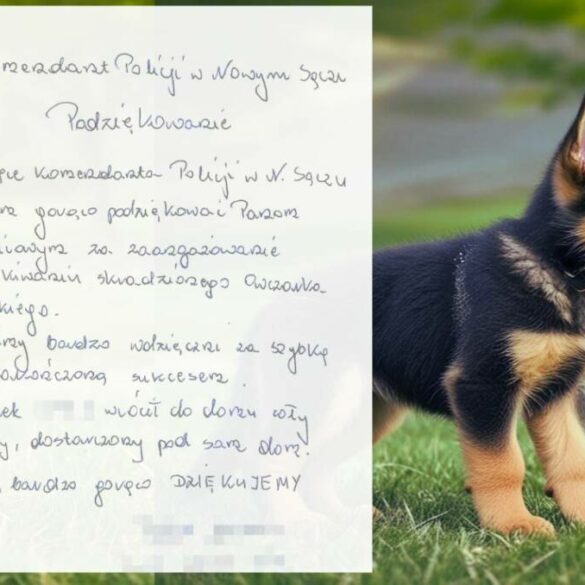 Komendant Policji w Nowym Sączu
Podziękowanie
Komendanta Policji w N. Sączu
gorąco podziękować Panom
za zaangażowanie
skradzionego Owczarka
bardzo wdzięczni za szybką
sukcesem.
wrócił do domu cały
dostarczony pod sam dom.
bardzo gorąco DZIĘKUJEMY